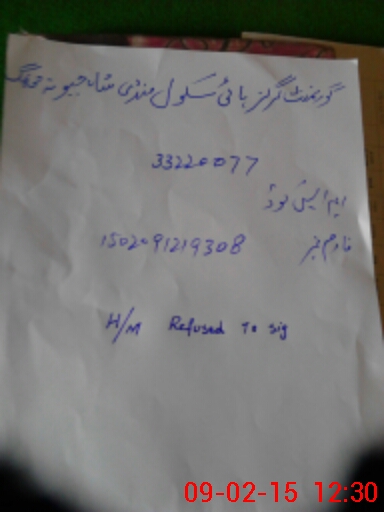 گورنمنٹ گرلز ہائی سکول منڈی شاہ جیونہ جھنگ
33220077
ایم ایس کوڈ
فارم نمبر 1502091219308
H/M Refused To sig
09-02-15 12:30